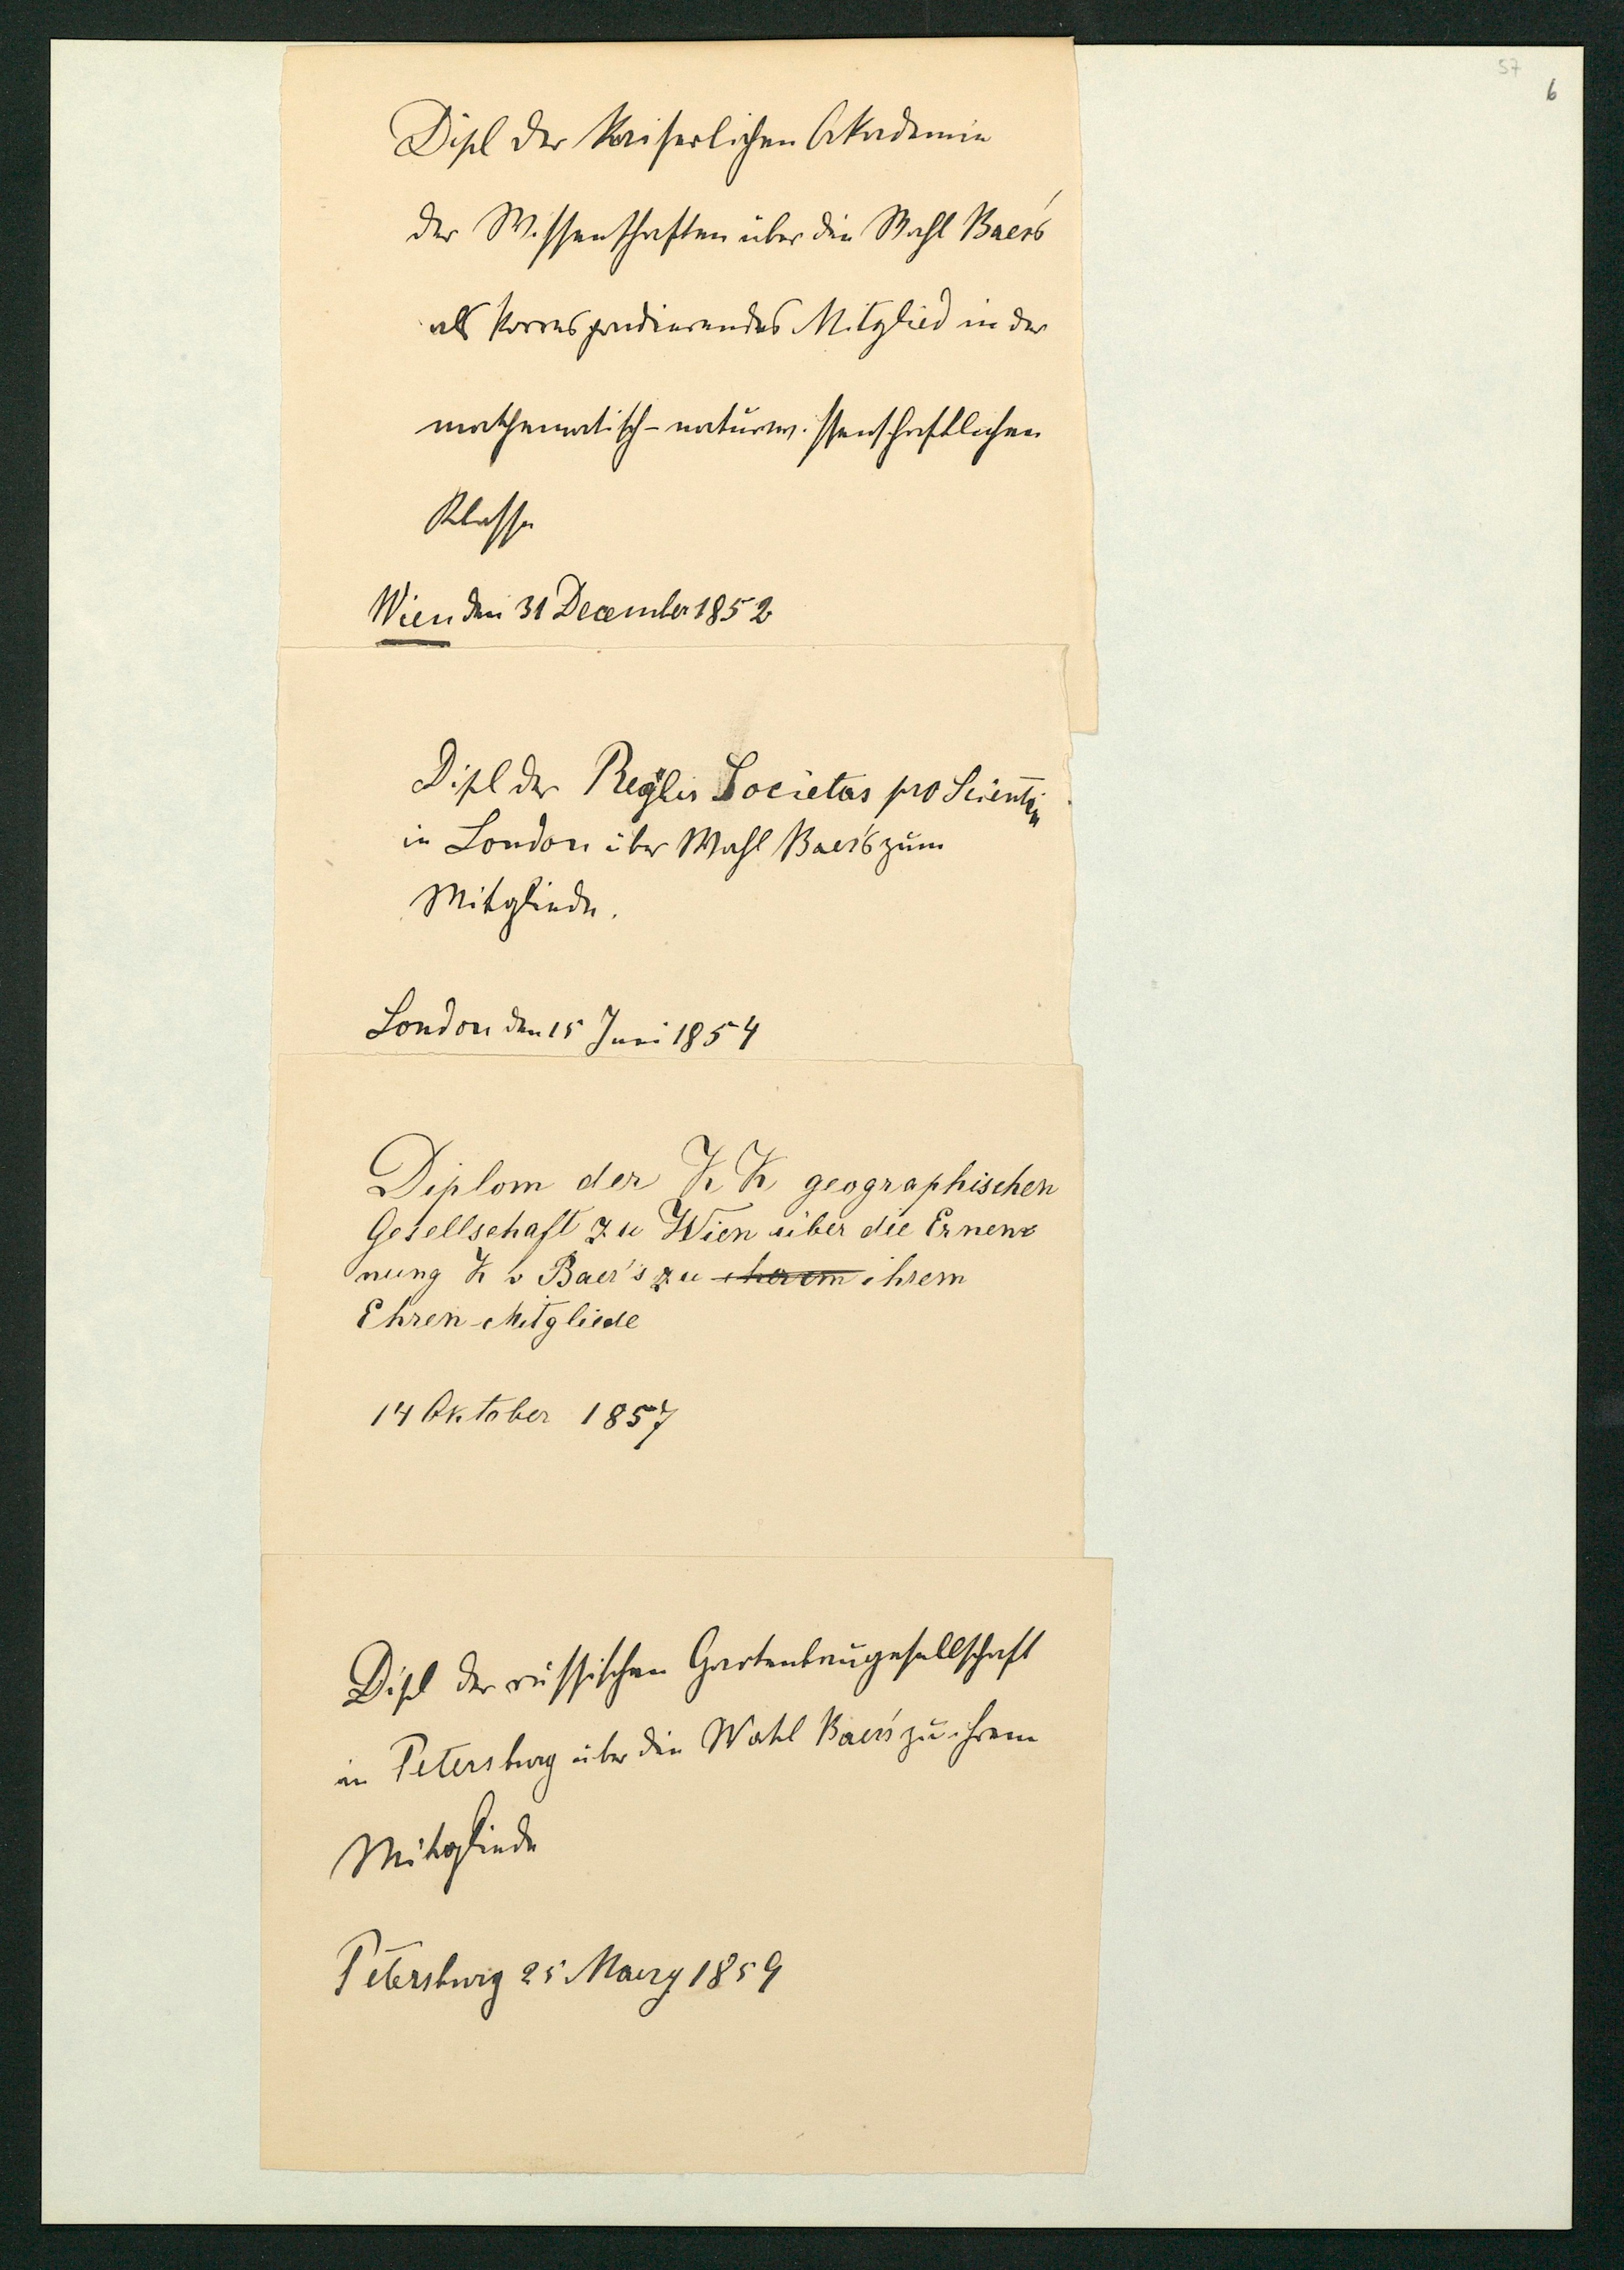 57
6
Dipl der Kaiserlichen Akademie
der Wissenschaften über die Wahl Baer's
als korrespondierendes Mitglied in der
mathematisch-naturwissenschaftlichen
Klasse
Wien den 31 December 1852
Dipl der Societas pro Scientia
in London über Wahl Baer's zum
Mitgliede.
London den 15 Juni 1854
Diplom der K K geographischen
Gesellschaft zu Wien über die Ernen=
nung K v Baer's zu ihrem
Ehren-Mitgliede
14 Oktober 1857
Dipl der russischen Gartenbaugesellschaft
in Petersburg über die Wahl Baer's zu ihrem
Mitgliede
Petersburg 25 Maerz 1859